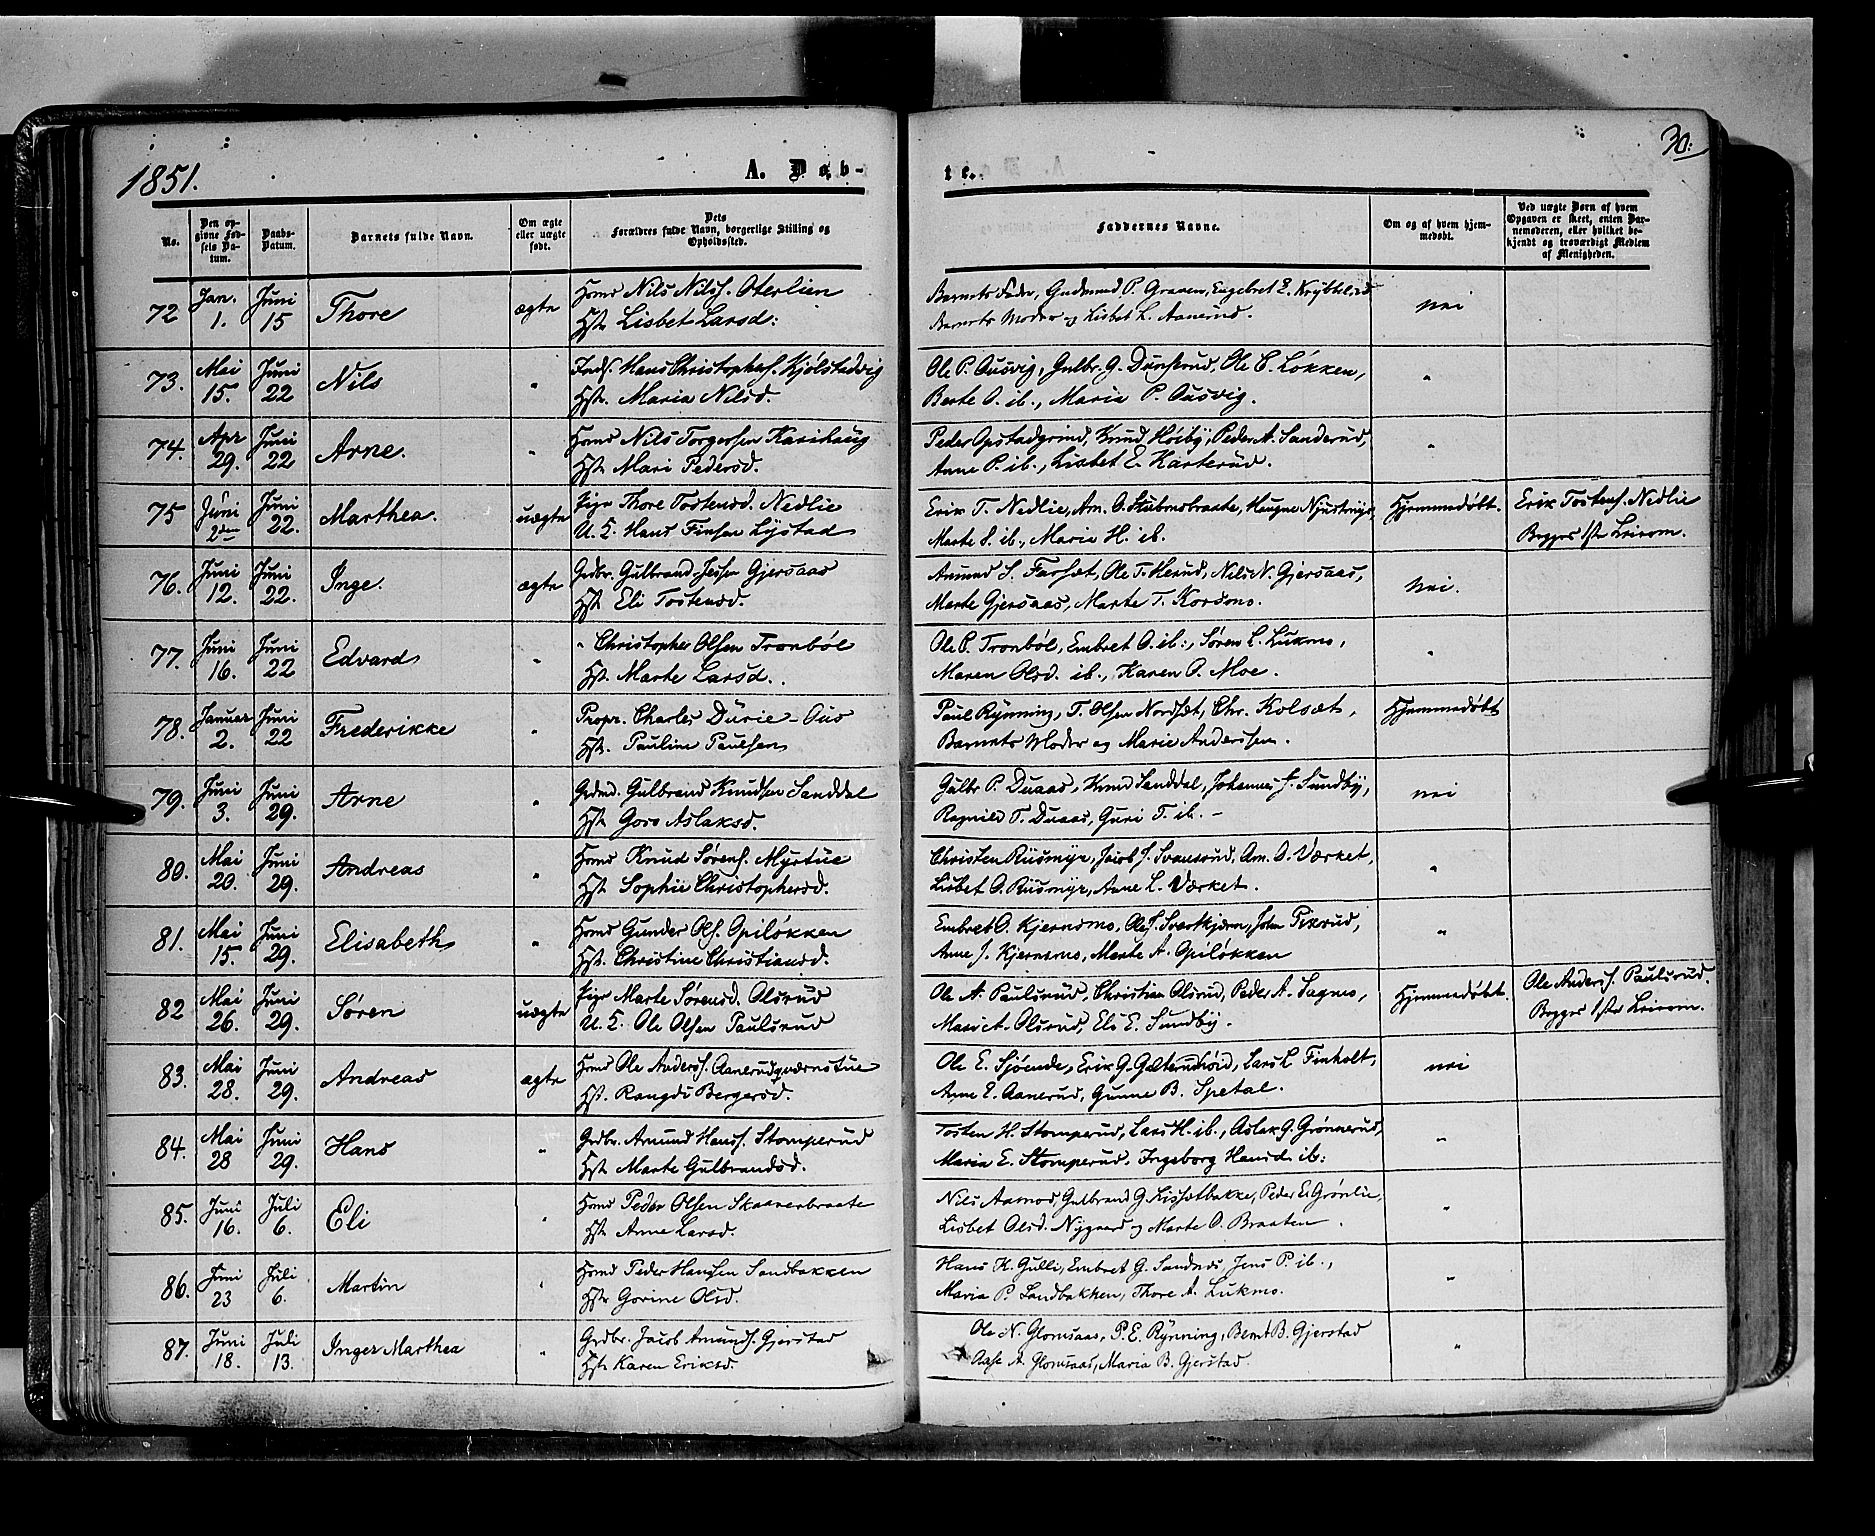 1851.
A. Dab-
te.
30.
No.
Den opgivne Fødsels Datum.
Daabs-Datum.
Barnets fulde Navn.
Om ægte eller uægte født.
Dets Forældres fulde Navn, borgerlige Stilling og Opholdssted.
Faddernes Navne.
Om og af hvem hjemmedøbt.
Ved uægte Børn af hvem Opgaven er skeet, enten Barnemoderen, eller hvilket bekjendt og troværdigt Medlem af Menigheden.
72 Jan. 1. Juni 15 Thore ægte Hsmd Nils Nilss. Oterlien
Hst. Lisbet Larsd:
Barnets Fader, Gudmund P. Graven, Engebret E. Krybbelid
Barnets Moder og Lisbet L. Aanerud. nei
73. Mai 15. Juni 22 Nils " Inds. Hans Christophers. Kjølstadvig
Hst. Maria Nilsd.
Ole P. Ousvig, Gulbr. G. Dunserud, Ole C. Løkken,
Berte O. ib., Maria P. Ousvig. "
74. Apr 29. Juni 22 Arne. " Hsmd Nils Torgersen Karihaug
Hst. Mari Pedersd.
Peder Opstadgrind, Knud Høiby, Peder A. Sanderud,
Anne P. ib., Lisbet E. Karterud. "
75 Juni 2den Juni 22. Marthea. uægte Pige Thore Tostensd. Nedlie
U. K. Hans Finsen Lystad
Erik T. Nedlie, Am. O. Stubmobraate, Haugne
Marte S. ib., Maria H. ib. Hjemmedøbt. Erik Tostens. Nedlie
Begges 1ste Leierm.
76. Juni 12. Juni 22. Inge. ægte Grdbr. Gulbrand Jessen Gjersaas
Hst. Eli Tostensd.
Amund S. Farsæt, Ole T. Herud, Nils N. Gjersaas,
Marte Gjersaas, Marte T. Korsmo. Nei.
77. Juni 16. Juni 22 Edvard " " Christopher Olsen Tronbøl
Hst. Marte Larsd.
Ole P. Tronbøl, Embret O. ib., Søren L. Lukmo,
Maren Olsd. ib., Karen P. Moe. "
78. Januar 2. Juni 22 Frederikke " Propr. Charles Durie - Ous
Hst. Pauline Paulsen
Paul Rynning, T. Olsen Nordsæt, Chr. Kolsæt,
Barnets Moder og Marie Anderssen. Hjemmedøbt
79. Juni 3. Juni 29. Arne " Grdmd. Gulbrand Knudsen Sanddal
Hst. Goro Aslaksd.
Gulbr P. Duaas, Knud Sanddal, Johannes J. Sundby,
Ragnild T. Duaas, Guri T. ib. - nei
80. Mai 20. Juni 29. Andreas " Hsmd Knud Sørens. Myrtue
Hst. Sophie Christophersd.
Christen Rusmyr, Jacob J. Svansrud, Am. O. Værket,
Lisbet O. Rusmyr, Anne L. Værket. "
81. Mai 15. Juni 29. Elisabeth " Hsmd Gunder Ols. Opiløkken
Hst. Christine Christiansd.
Embret O. Kjernsmo, Ole J. Svartkjern, John Pixrud,
Anne J. Kjernsmo, Marte A. Opiløkken "
82 Mai 26. Juni 29. Søren uægte Pige Marte Sørensd. Olsrud
U. K. Ole Olsen Paulsrud
Ole A. Paulsrud, Christian Olsrud, Peder A. Sagmo,
Mari A. Olsrud, Eli E. Sundby. Hjemmedøbt. Ole Anders. Paulsrud.
Begges 1ste Leierm.
83. Mai 28. Juni 29. Andreas ægte Hsmd Ole Anders. Aanerudqværnstue
Hst. Rangdi Bergersd.
Ole E. Sjøende, Erik G. Gatterudhøid, Lars L Finholt,
Anne E. Aanerud, Gunne B. Spetal. nei
84. Mai 28 Juni 29. Hans " Grdbr. Amund Hans. Stomperud
Hst Marte Gulbrandsd.
Tosten H. Stomperud, Lars H. ib., Aslak G. Grønnerud,
Maria E. Stomperud, Ingeborg Hansd ib: "
85. Juni 16. Juli 6. Eli " Hsmd Peder Olsen Skaanerbraate
Hst. Anne Larsd.
Nils Aamod, Gulbrand G. Lissætbakke, Peder E. Grønlie,
Lisbet Olsd. Nygaard og Marte O. Braaten. "
86. Juni 23 Juli 6. Martin " Hsmd Peder Hansen Sandbakken
Hst. Gorine Olsd.
Hans K. Gulli, Embret G. Sandnes, Jens P. ib.,
Maria P. Sandbakken, Thore A. Lukmo. "
87. Juni 18. Juli 13. Inger Marthea " Grdbr. Jacob Amunds. Gjerstad
Hst. Karen Eriksd.
Ole N. Glomsaas, P. E. Rynning, Bernt B. Gjerstad
Aase A. Glomsaas, Maria B. Gjerstad. "